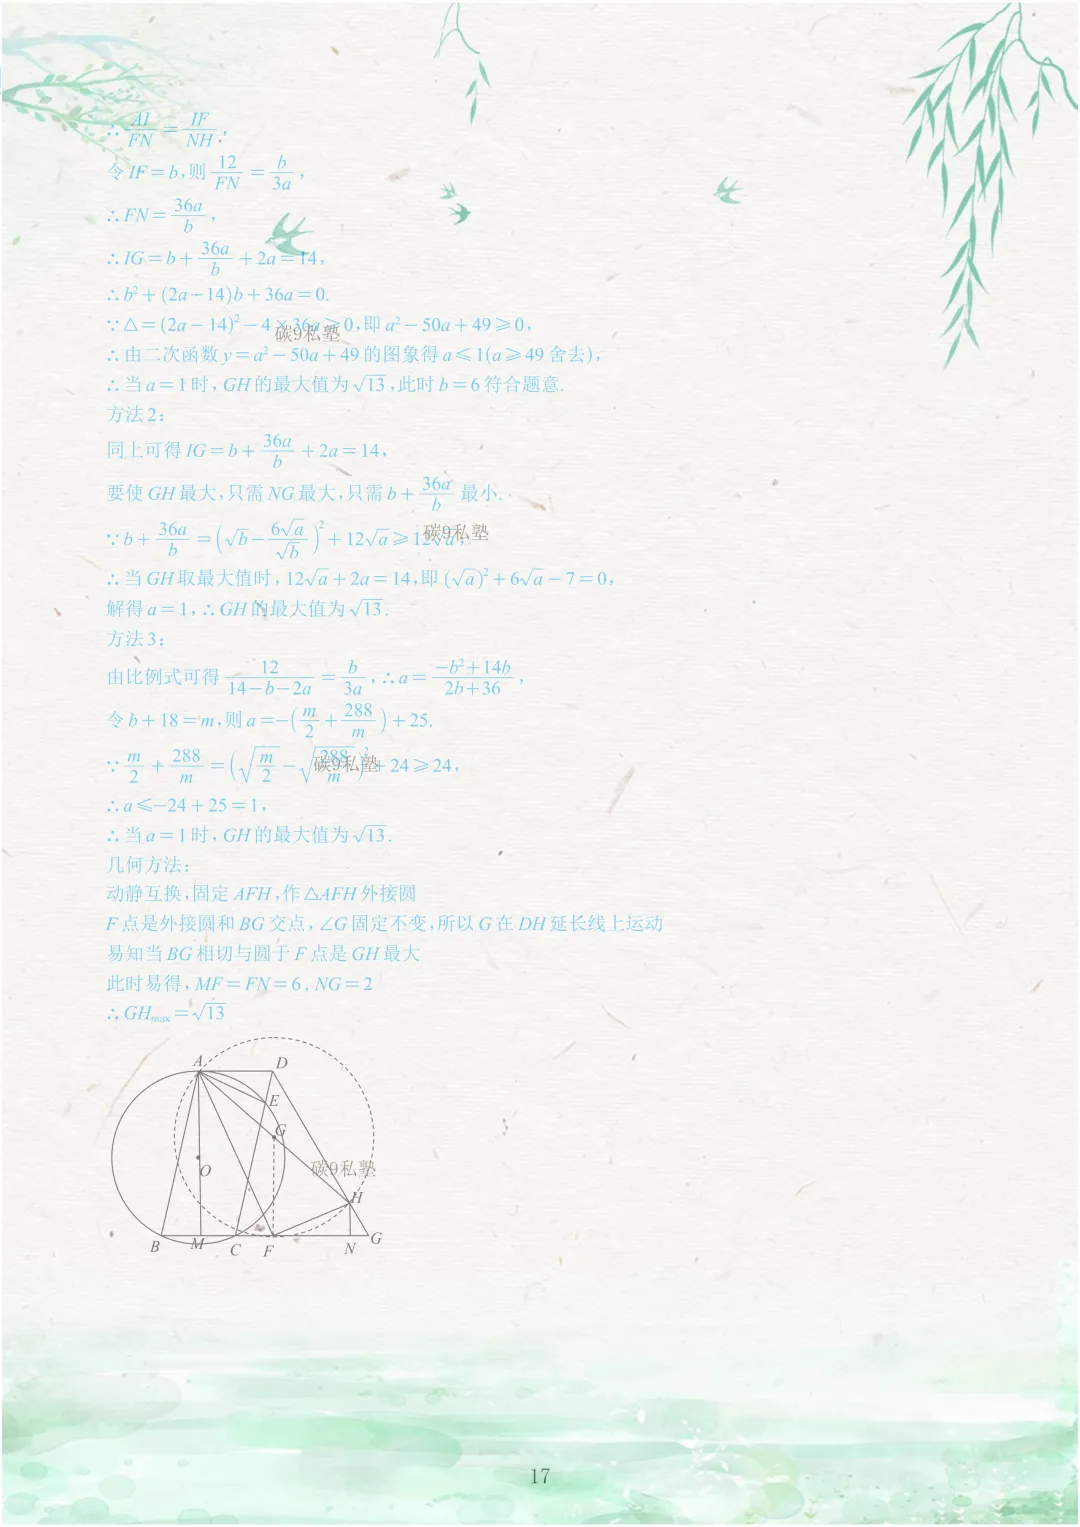 ∴ AI/FN = IF/NH,
令 IF=b,则 12/FN = b/3a,
∴FN= 36a/b,
∴IG=b+ 36a/b +2a=14,
∴b²+(2a-14)b+36a=0.
∵△=(2a-14)²-4×36a≥0,即a²-50a+49≥0,
碳9私塾
∴由二次函数y=a²-50a+49的图象得a≤1(a≥49舍去),
∴当a=1时,GH的最大值为√13,此时b=6符合题意.
方法2:
同上可得IG=b+ 36a/b +2a=14,
要使GH最大,只需NG最大,只需b+ 36a/b 最小.
∵b+ 36a/b =(√b- 6√a/√b)²+12√a≥12√a,
碳9私塾
∴当GH取最大值时,12√a+2a=14,即(√a)²+6√a-7=0,
解得a=1,∴GH的最大值为√13.
方法3:
由比例式可得 12/(14-b-2a) = b/3a,∴a= (-b²+14b)/(2b+36),
令b+18=m,则a=-(m/2 + 288/m)+25.
∵ m/2 + 288/m =(√(m/2) - √(288/m))²+24≥24,
碳9私塾
∴a≤-24+25=1,
∴当a=1时,GH的最大值为√13.
几何方法:
动静互换,固定AFH,作△AFH外接圆
F点是外接圆和BG交点,∠G固定不变,所以G在DH延长线上运动
易知当BG相切与圆于F点是GH最大
此时易得,MF=FN=6,NG=2
∴GHmax=√13
A D
E
G
O
碳9私塾
H
B M C F N G
17